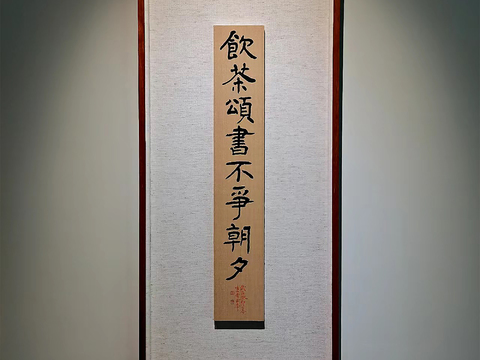 飲茶頌書不爭朝夕